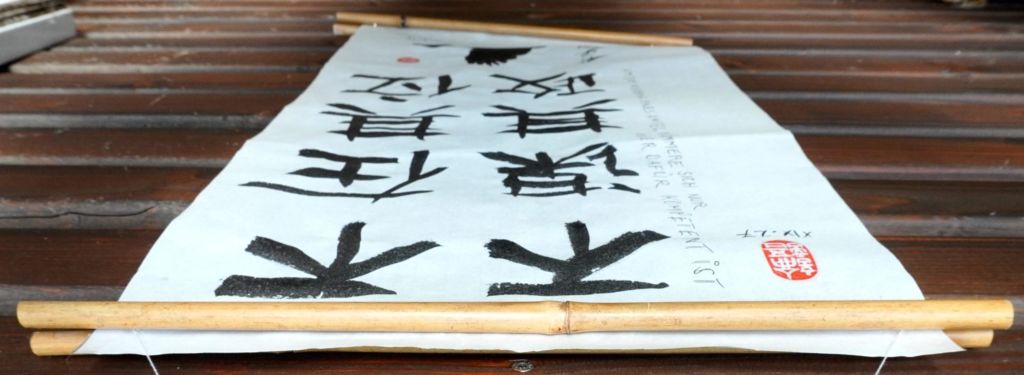 不在其位
不謀其政
KÜMMERE SICH NUR
ER DAFÜR KOMPETENT IST